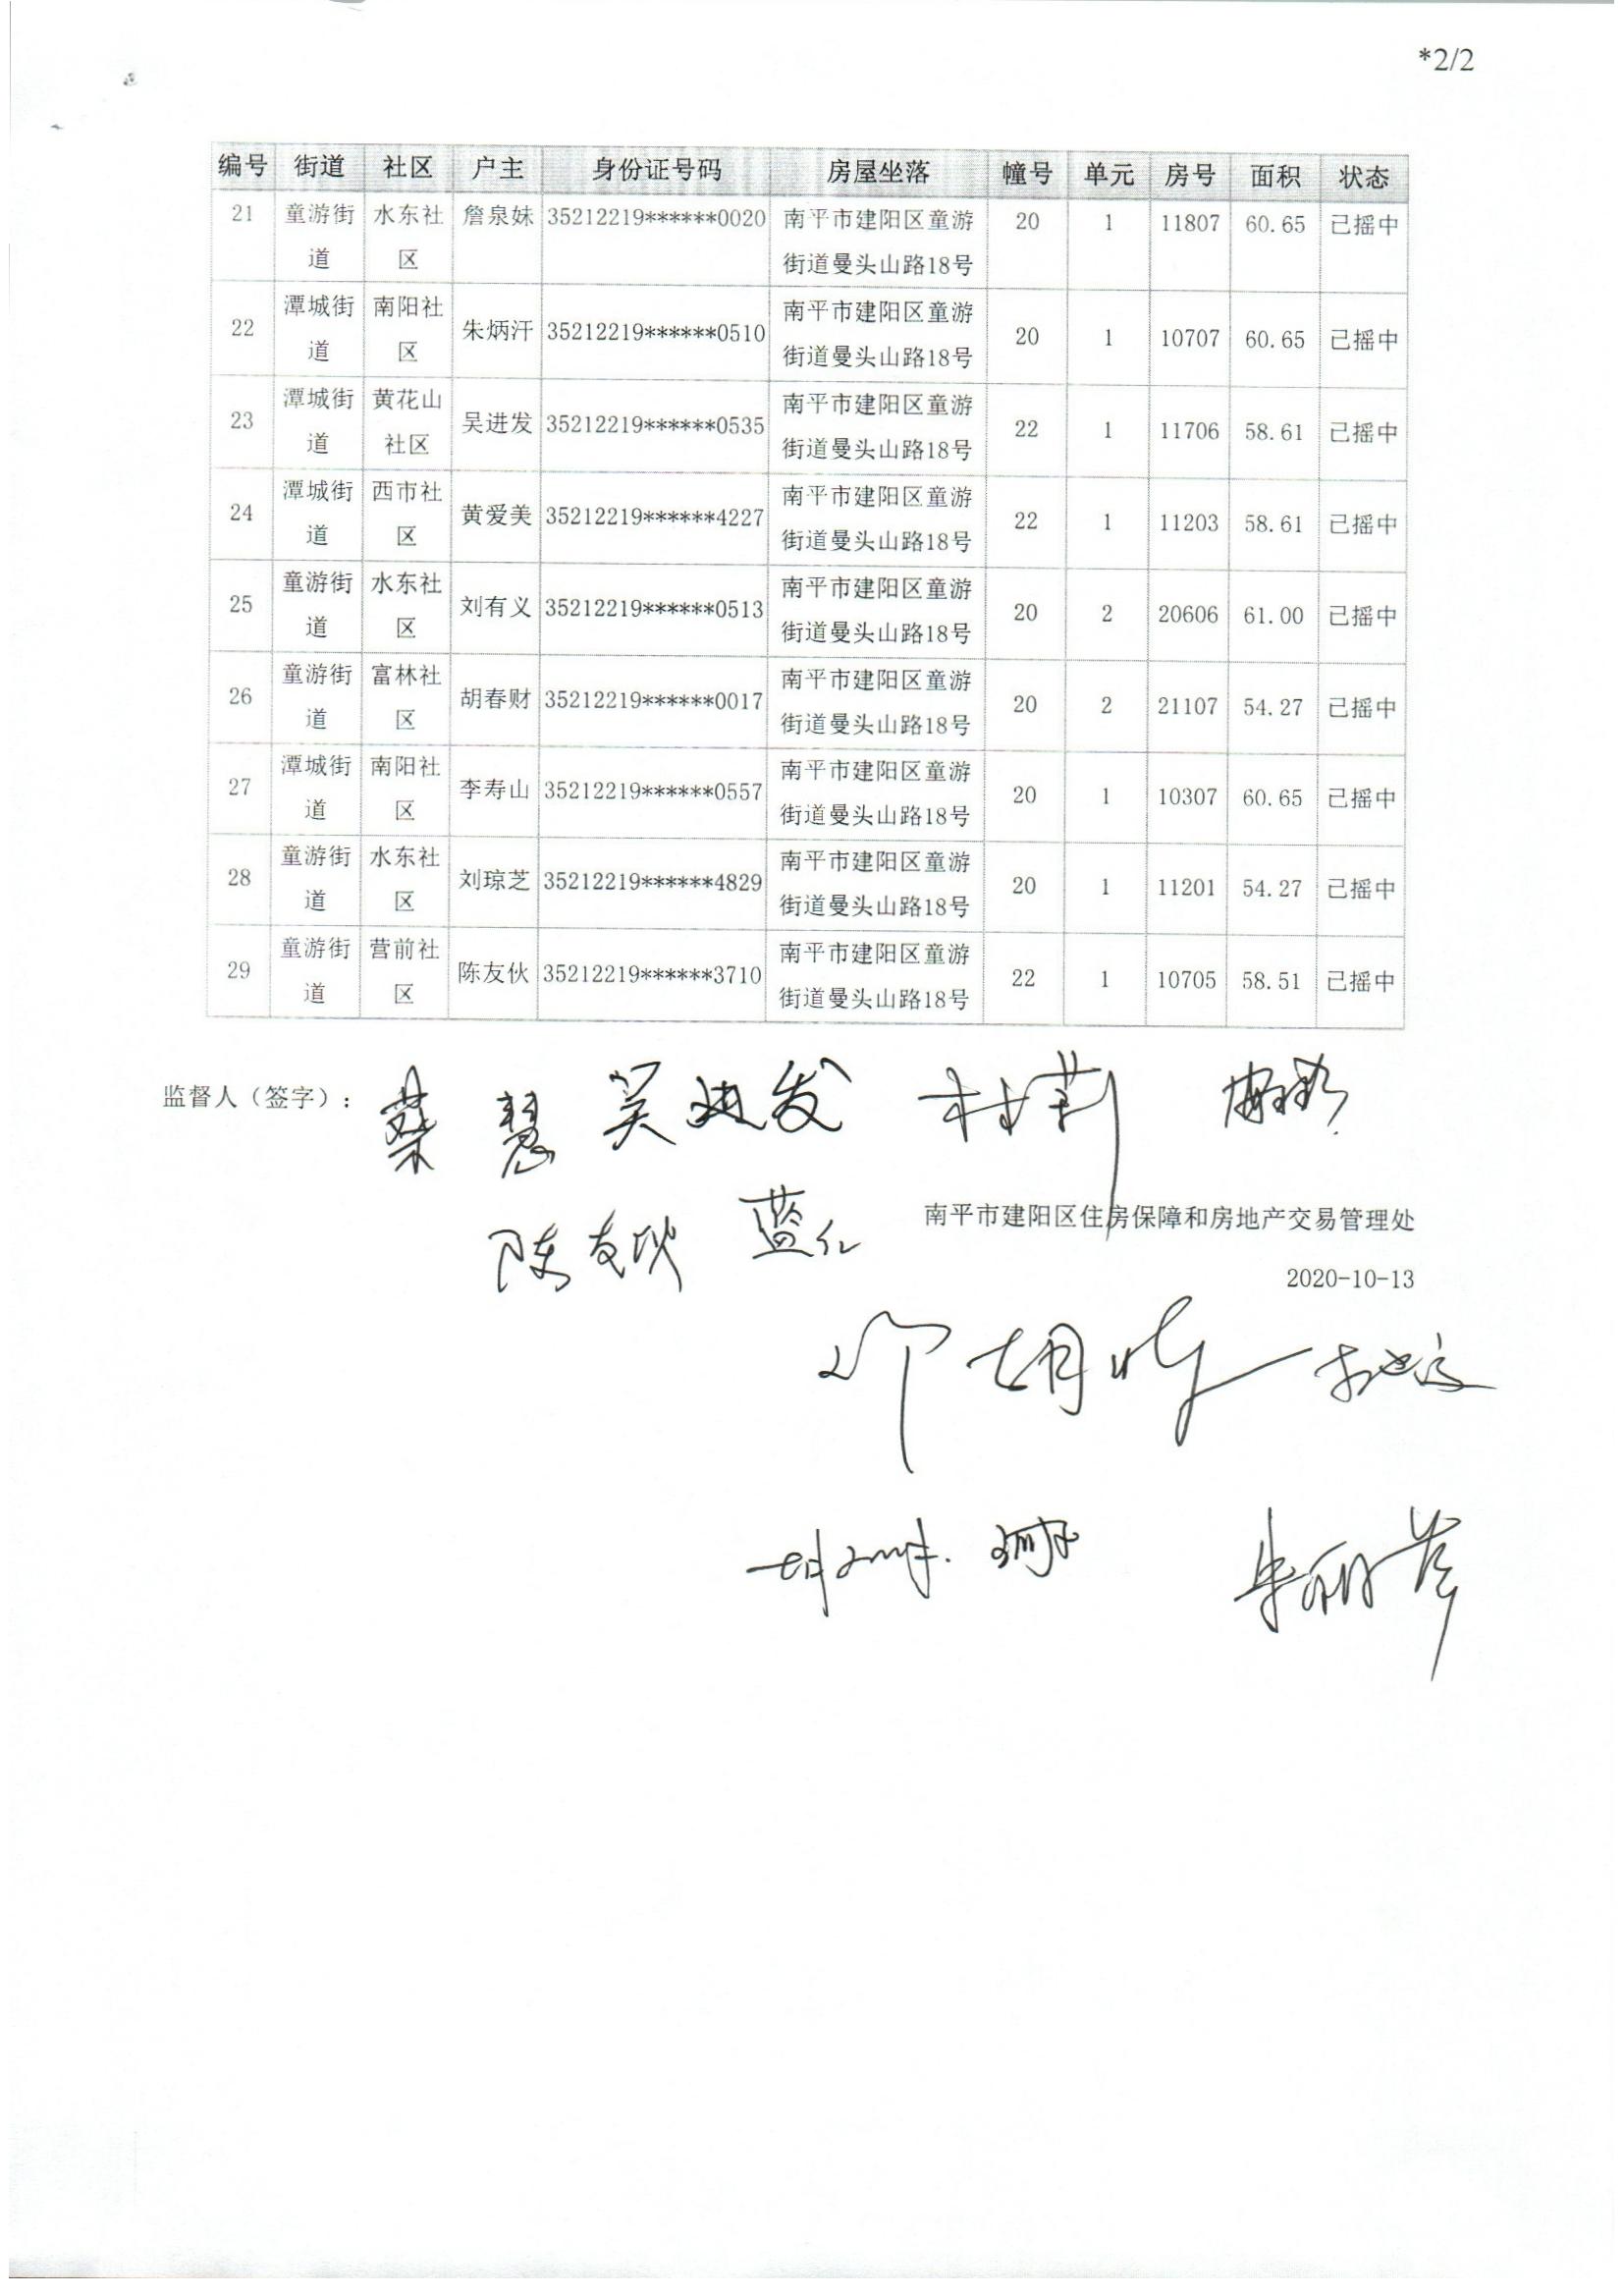 *2/2
编号 街道 社区 户主 身份证号码 房屋坐落 幢号 单元 房号 面积 状态
21 童游街道 水东社区 詹泉妹 35212219******0020 南平市建阳区童游街道曼头山路18号 20 1 11807 60.65 已摇中
22 潭城街道 南阳社区 朱炳汗 35212219******0510 南平市建阳区童游街道曼头山路18号 20 1 10707 60.65 已摇中
23 潭城街道 黄花山社区 吴进发 35212219******0535 南平市建阳区童游街道曼头山路18号 22 1 11706 58.61 已摇中
24 潭城街道 西市社区 黄爱美 35212219******4227 南平市建阳区童游街道曼头山路18号 22 1 11203 58.61 已摇中
25 童游街道 水东社区 刘有义 35212219******0513 南平市建阳区童游街道曼头山路18号 20 2 20606 61.00 已摇中
26 童游街道 富林社区 胡春财 35212219******0017 南平市建阳区童游街道曼头山路18号 20 2 21107 54.27 已摇中
27 潭城街道 南阳社区 李寿山 35212219******0557 南平市建阳区童游街道曼头山路18号 20 1 10307 60.65 已摇中
28 童游街道 水东社区 刘琼芝 35212219******4829 南平市建阳区童游街道曼头山路18号 20 1 11201 54.27 已摇中
29 童游街道 营前社区 陈友伙 35212219******3710 南平市建阳区童游街道曼头山路18号 22 1 10705 58.51 已摇中
监督人（签字）: 蔡慧 吴进发 杜莉
陈友伙 蓝仁
南平市建阳区住房保障和房地产交易管理处
2020-10-13